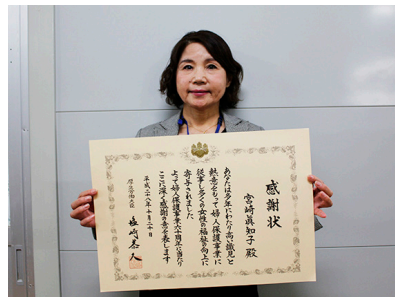 感謝状
宮崎眞知子 殿
あなたは多年にわたり高い識見と
熱意をもって婦人保護事業に
従事し多くの女性の福祉の向上に
寄与されました
よって婦人保護事業六十周年に当たり
ここに深く感謝の意を表します
平成二十八年十月二十日
厚生労働大臣
塩崎恭久